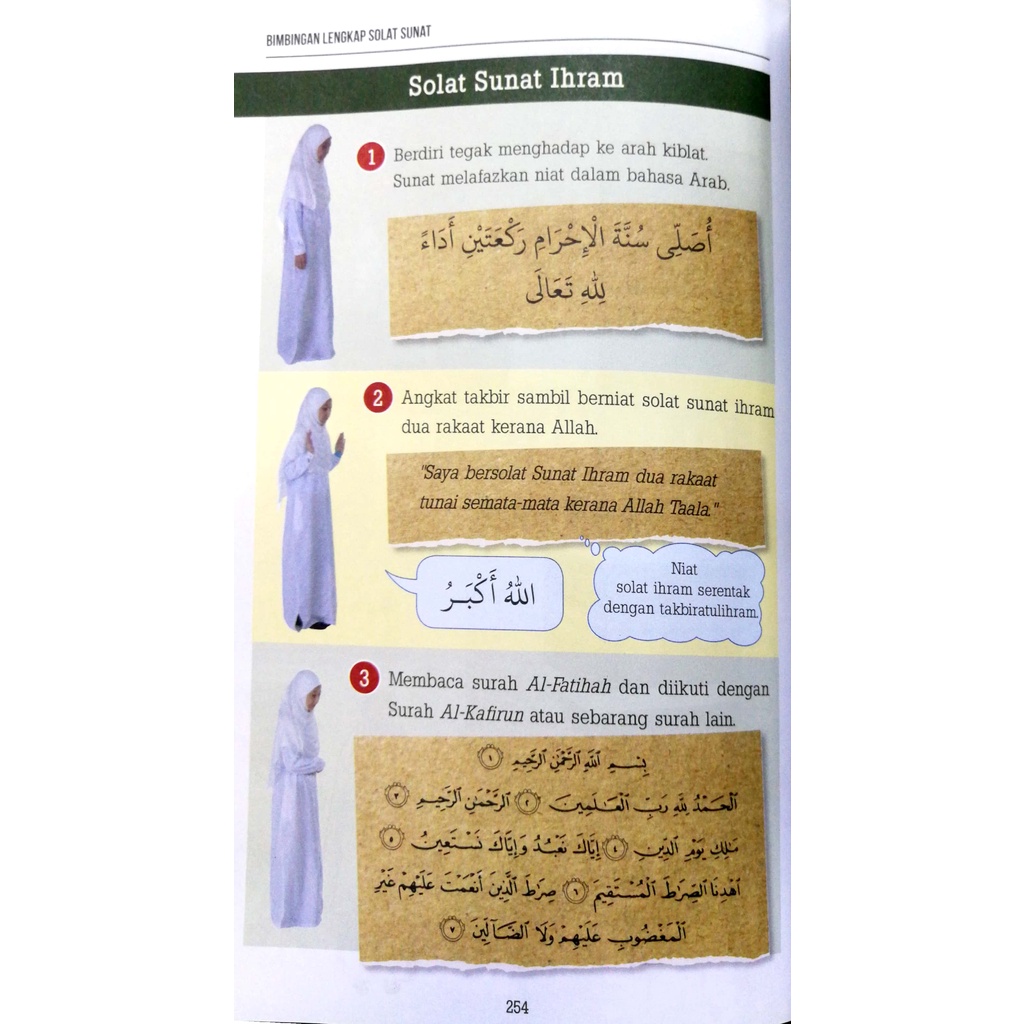 BIMBINGAN LENGKAP SOLAT SUNAT
Solat Sunat Ihram
1 Berdiri tegak menghadap ke arah kiblat.
Sunat melafazkan niat dalam bahasa Arab.
أُصَلِّى سُنَّةَ الْإِحْرَامِ رَكْعَتَيْنِ أَدَاءً
لِلّٰهِ تَعَالَى
2 Angkat takbir sambil berniat solat sunat ihram
dua rakaat kerana Allah.
"Saya bersolat Sunat Ihram dua rakaat
tunai semata-mata kerana Allah Taala."
اللهُ أَكْبَـرُ
Niat
solat ihram serentak
dengan takbiratulihram.
3 Membaca surah Al-Fatihah dan diikuti dengan
Surah Al-Kafirun atau sebarang surah lain.
بِسْمِ ٱللَّهِ ٱلرَّحْمَٰنِ ٱلرَّحِيمِ ١
ٱلْحَمْدُ لِلَّهِ رَبِّ ٱلْعَـٰلَمِينَ ٢ ٱلرَّحْمَٰنِ ٱلرَّحِيمِ ٣
مَـٰلِكِ يَوْمِ ٱلدِّينِ ٤ إِيَّاكَ نَعْبُدُ وَإِيَّاكَ نَسْتَعِينُ ٥
ٱهْدِنَا ٱلصِّرَٰطَ ٱلْمُسْتَقِيمَ ٦ صِرَٰطَ ٱلَّذِينَ أَنْعَمْتَ عَلَيْهِمْ غَيْرِ
ٱلْمَغْضُوبِ عَلَيْهِمْ وَلَا ٱلضَّآلِّينَ ٧
254